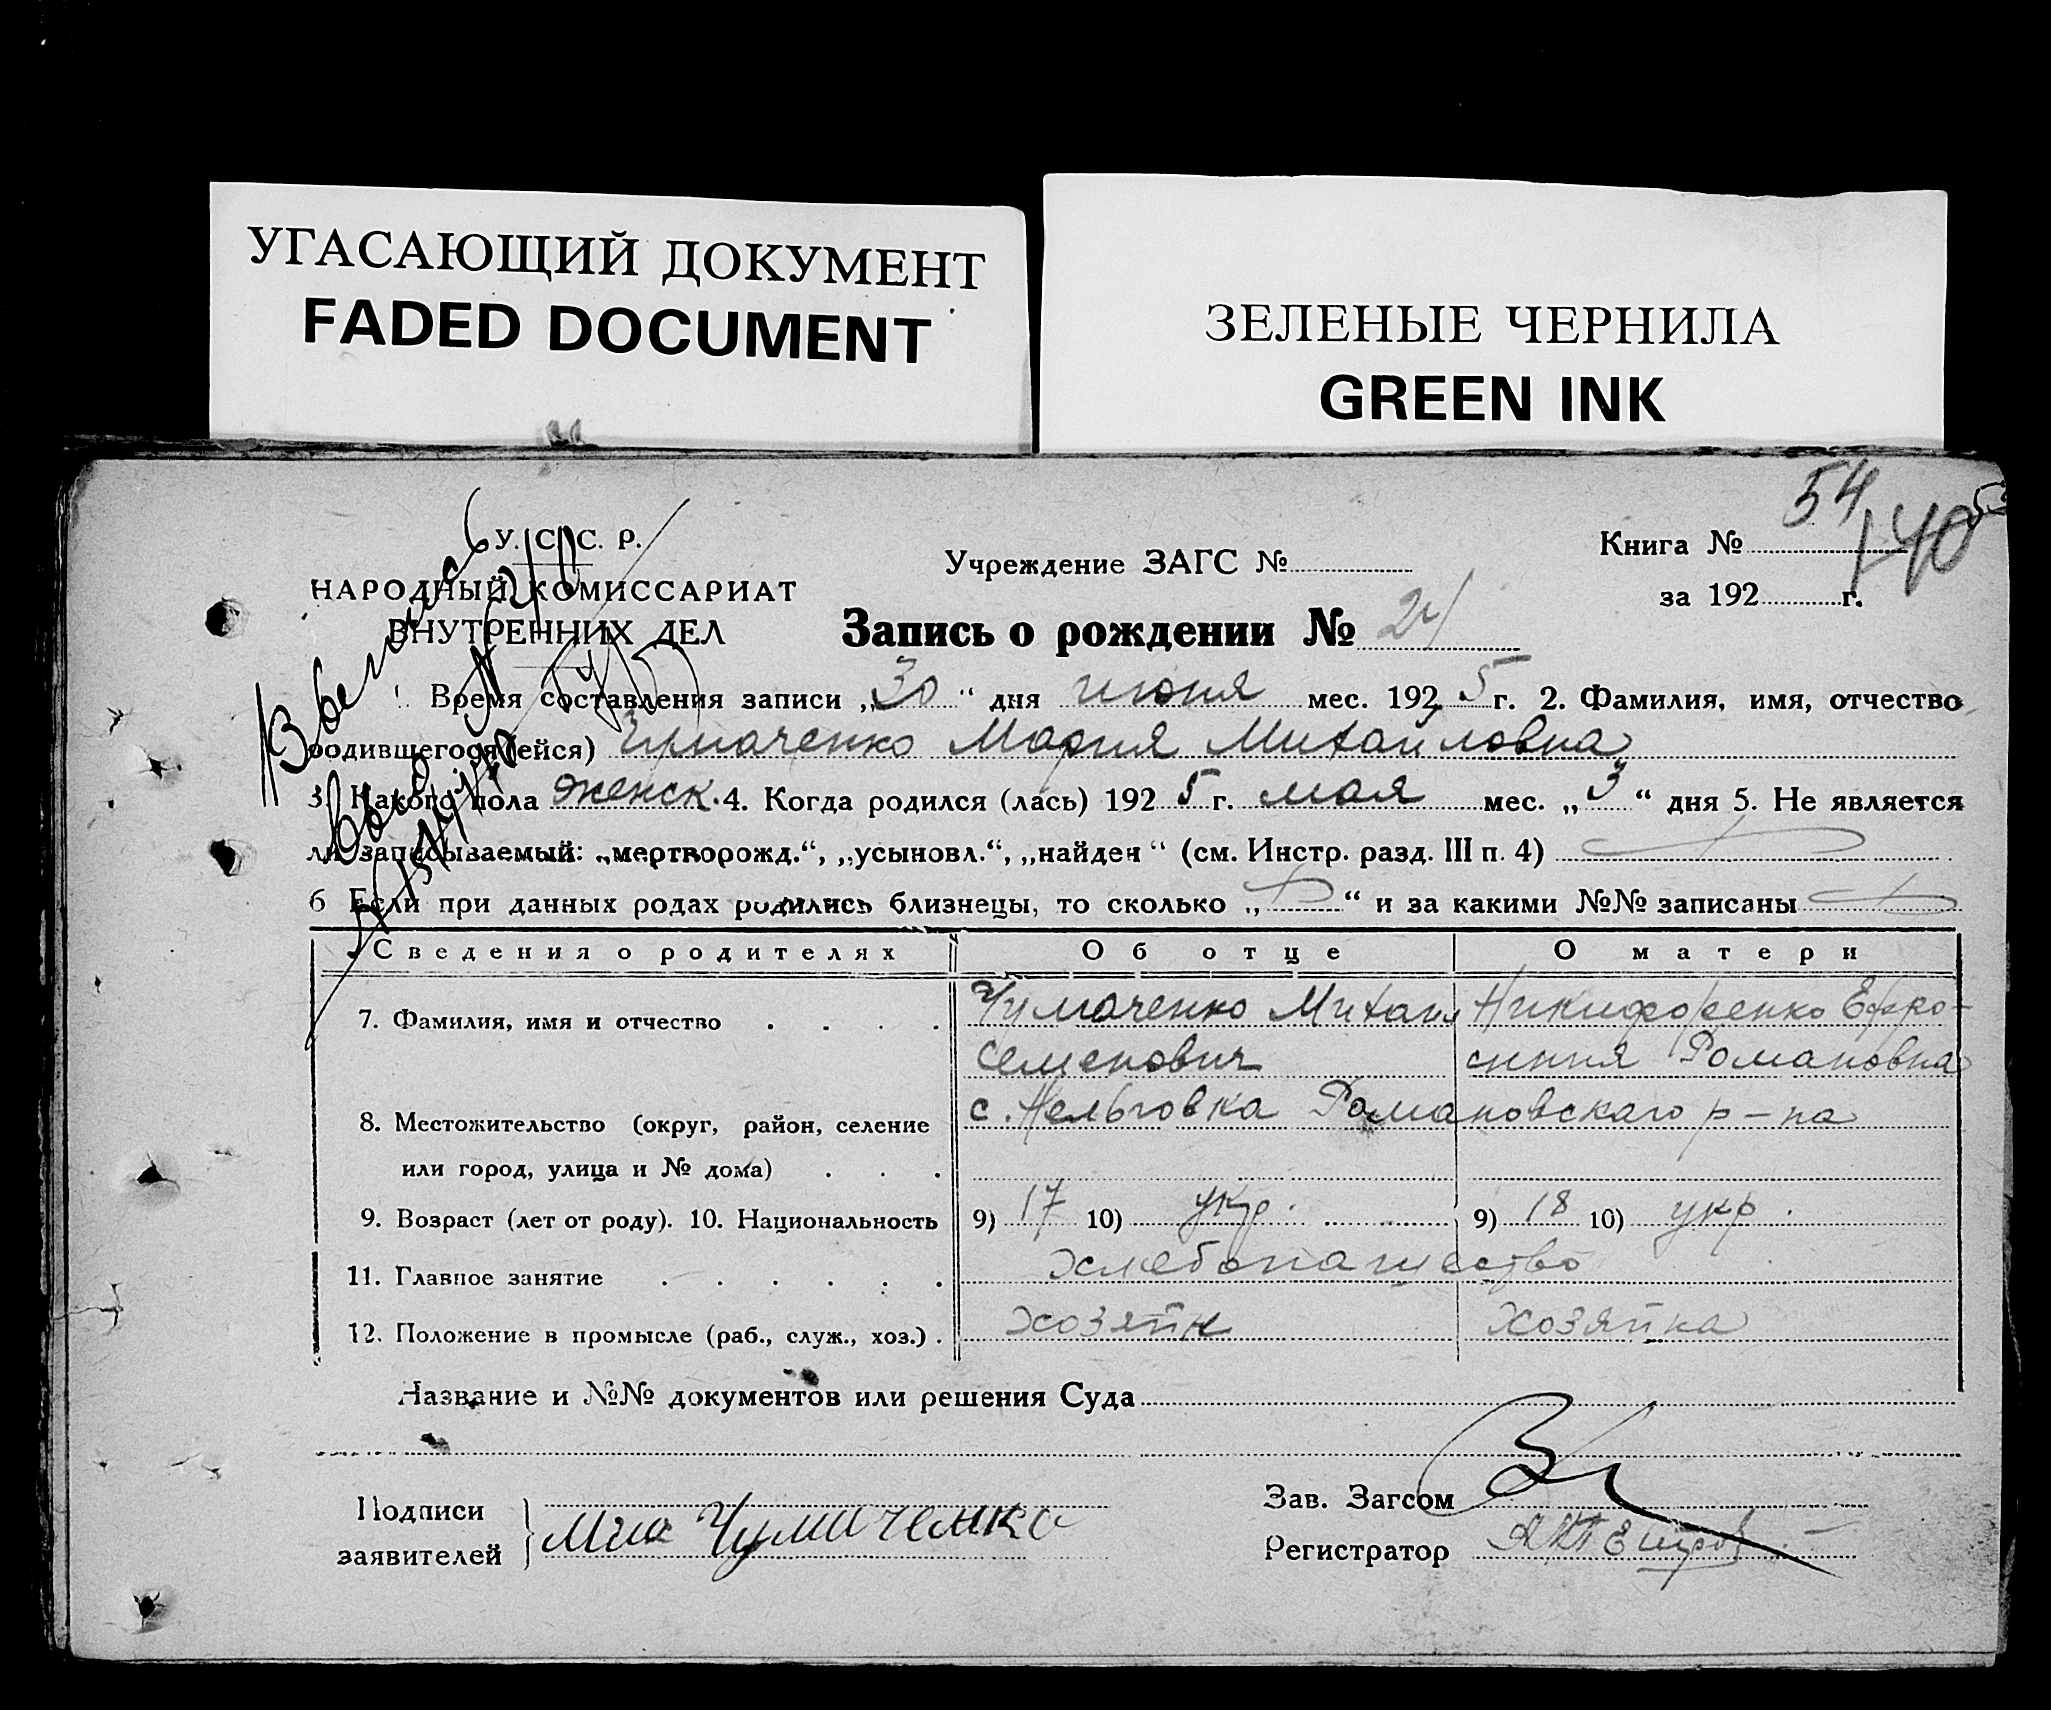 УГАСАЮЩИЙ ДОКУМЕНТ
FADED DOCUMENT
ЗЕЛЕНЫЕ ЧЕРНИЛА
GREEN INK
54
140
У. С. С. Р.
НАРОДНЫЙ КОМИССАРИАТ
ВНУТРЕННИХ ДЕЛ
Учреждение ЗАГС №
Книга №
за 192 г.
Запись о рождении № 24
Время составления записи „30“ дня июня мес. 1925 г. 2. Фамилия, имя, отчество
родившегося (ейся) Чумаченко Мария Михайловна
3. Какого пола женск. 4. Когда родился (лась) 1925 г. мая мес. „3“ дня 5. Не является
ли записываемый: „мертворожд.“, „усыновл.“, „найден“ (см. Инстр. разд. III п. 4)
6 Если при данных родах родились близнецы, то сколько „ “ и за какими №№ записаны
Сведения о родителях Об отце О матери
7. Фамилия, имя и отчество Чумаченко Михаил Никифоренко Ефро-
Семенович синия Романовна
8. Местожительство (округ, район, селение с. Нельговка Романовскаго р-на
или город, улица и № дома)
9. Возраст (лет от роду). 10. Национальность 9) 17 10) укр. 9) 18 10) укр.
11. Главное занятие хлебопашество
12. Положение в промысле (раб., служ., хоз.) . хозяйн хозяйка
Название и №№ документов или решения Суда
Подписи
заявителей
Чумаченко
Зав. Загсом
Регистратор